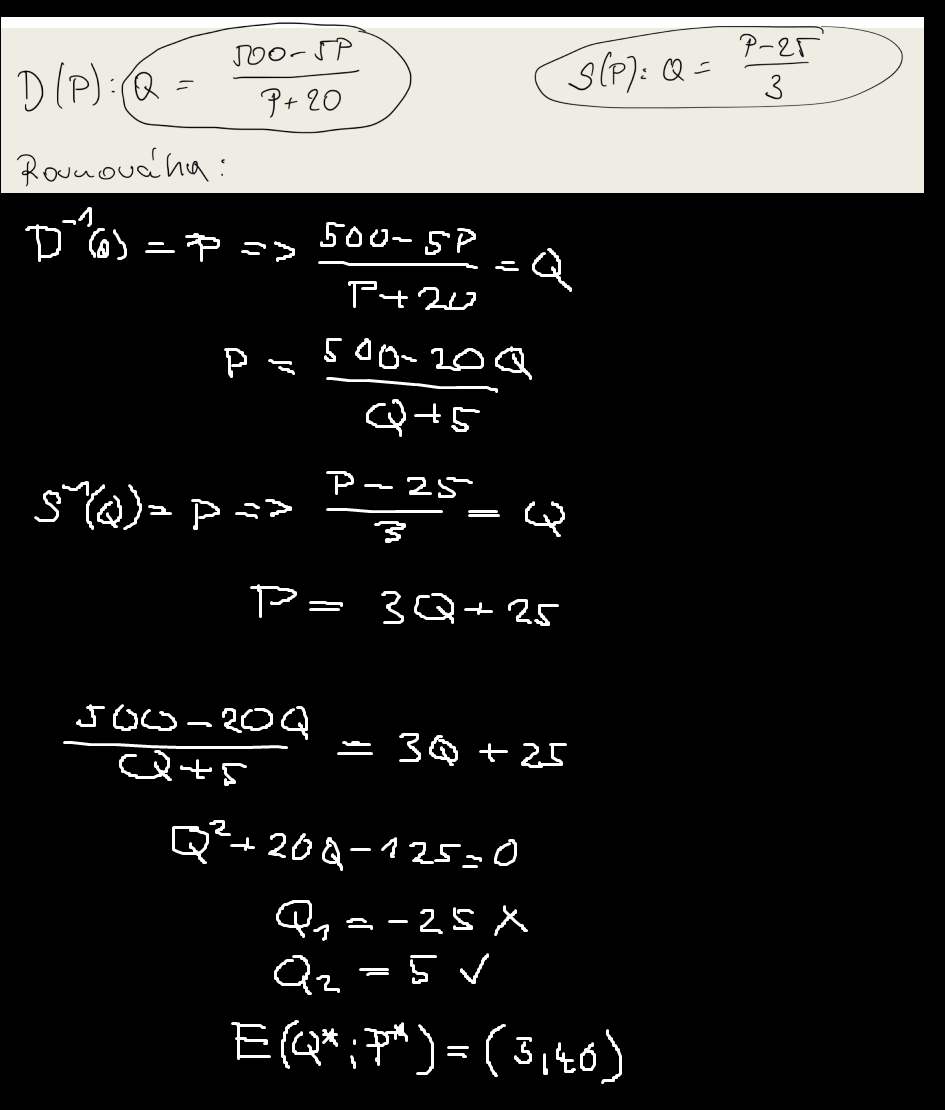 D(P): Q = (500-5P)/(P+20) S(P): Q = (P-25)/3
Rovnováha:
D⁻¹(Q) = P => (500-5P)/(P+20) = Q
P = (500-20Q)/(Q+5)
S⁻¹(Q) = P => (P-25)/3 = Q
P = 3Q+25
(500-20Q)/(Q+5) = 3Q+25
Q²+20Q-125=0
Q₁ = -25 ×
Q₂ = 5 ✓
E(Q*;P*) = (5,40)